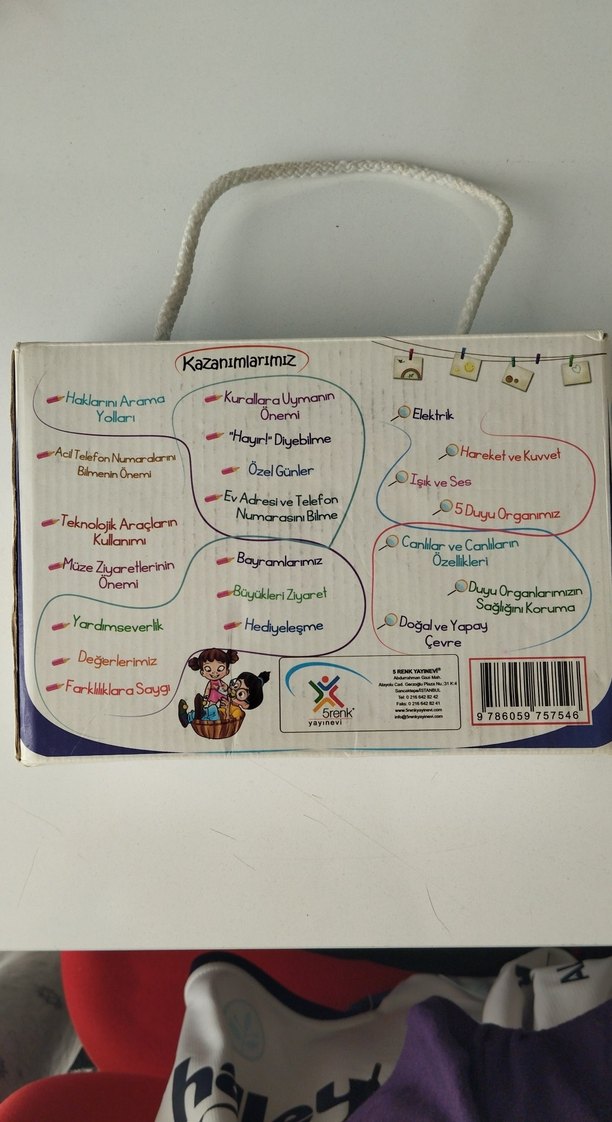 Kazanımlarımız
Haklarını Arama
Yolları
Acil Telefon Numaralarını
Bilmenin Önemi
Teknolojik Araçların
Kullanımı
Müze Ziyaretlerinin
Önemi
Yardımseverlik
Değerlerimiz
Farklılıklara Saygı
Kurallara Uymanın
Önemi
"Hayır!" Diyebilme
Özel Günler
Ev Adresi ve Telefon
Numarasını Bilme
Bayramlarımız
Büyükleri Ziyaret
Hediyeleşme
Elektrik
Hareket ve Kuvvet
Işık ve Ses
5 Duyu Organımız
Canlılar ve Canlıların
Özellikleri
Duyu Organlarımızın
Sağlığını Koruma
Doğal ve Yapay
Çevre
5renk
yayınevi
5 RENK YAYINEVİ
Abdurrahman Gazi Mah.
Atayolu Cad. Gerzoğlu Plaza No: 31 K:4
Sancaktepe/İSTANBUL
Tel: 0 216 642 82 42
Faks: 0 216 642 82 41
www.5renkyayinevi.com
info@5renkyayinevi.com
9 786059 757546